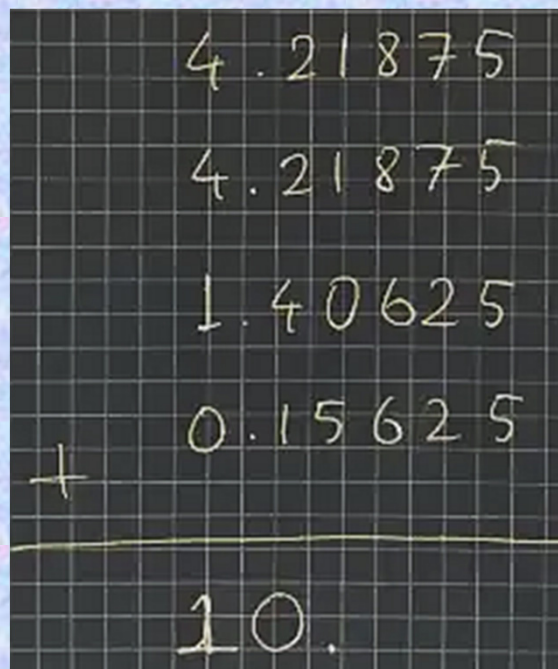 4.21875
4.21875
1.40625
0.15625
+
10.